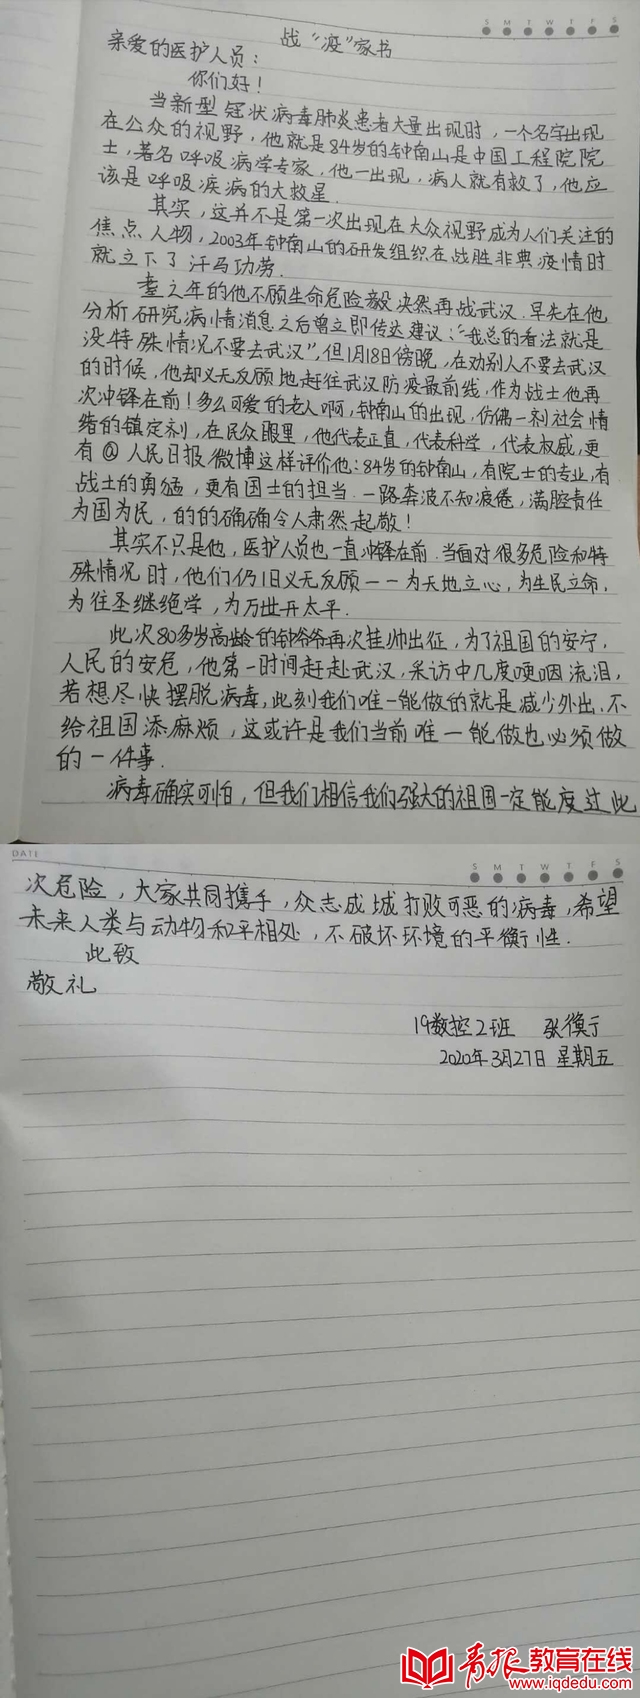 战“疫”家书
S M T W T F S
亲爱的医护人员：
你们好！
当新型冠状病毒肺炎患者大量出现时，一个名字出现
在公众的视野，他就是84岁的钟南山是中国工程院院
士，著名呼吸病学专家，他一出现，病人就有救了，他应
该是呼吸疾病的大救星.
其实，这并不是第一次出现在大众视野成为人们关注的
焦点人物，2003年钟南山的研发组织在战胜非典疫情时
就立下了汗马功劳.
耋之年的他不顾生命危险毅决然再战武汉.早先在他
分析研究病情消息之后曾立即传达建议：“我总的看法就是
没特殊情况不要去武汉”，但1月18日傍晚，在劝别人不要去武汉
的时候，他却义无反顾地赶往武汉防疫最前线，作为战士他再
次冲锋在前！多么可爱的老人啊，钟南山的出现，仿佛一剂社会情
绪的镇定剂，在民众眼里，他代表正直，代表科学，代表权威，更
有@人民日报微博这样评价他：84岁的钟南山，有院士的专业，有
战士的勇猛，更有国士的担当.一路奔波不知疲倦，满腔责任
为国为民，的的确确令人肃然起敬！
其实不只是他，医护人员也一直冲锋在前.当面对很多危险和特
殊情况时，他们仍旧义无反顾——为天地立心，为生民立命，
为往圣继绝学，为万世开太平.
此次80多岁高龄的钟爷爷再次挂帅出征，为了祖国的安宁，
人民的安危，他第一时间赶赴武汉，采访中几度哽咽流泪，
若想尽快摆脱病毒，此刻我们唯一能做的就是减少外出、不
给祖国添麻烦，这或许是我们当前唯一能做也必须做
的一件事.
病毒确实可怕，但我们相信我们强大的祖国一定能度过此
DATE
S M T W T F S
次危险，大家共同携手，众志成城打败可恶的病毒，希望
未来人类与动物和平相处，不破坏环境的平衡性.
此致
敬礼
19数控2班 张
2020年3月27日 星期五
青报教育在线
www.iqdedu.com